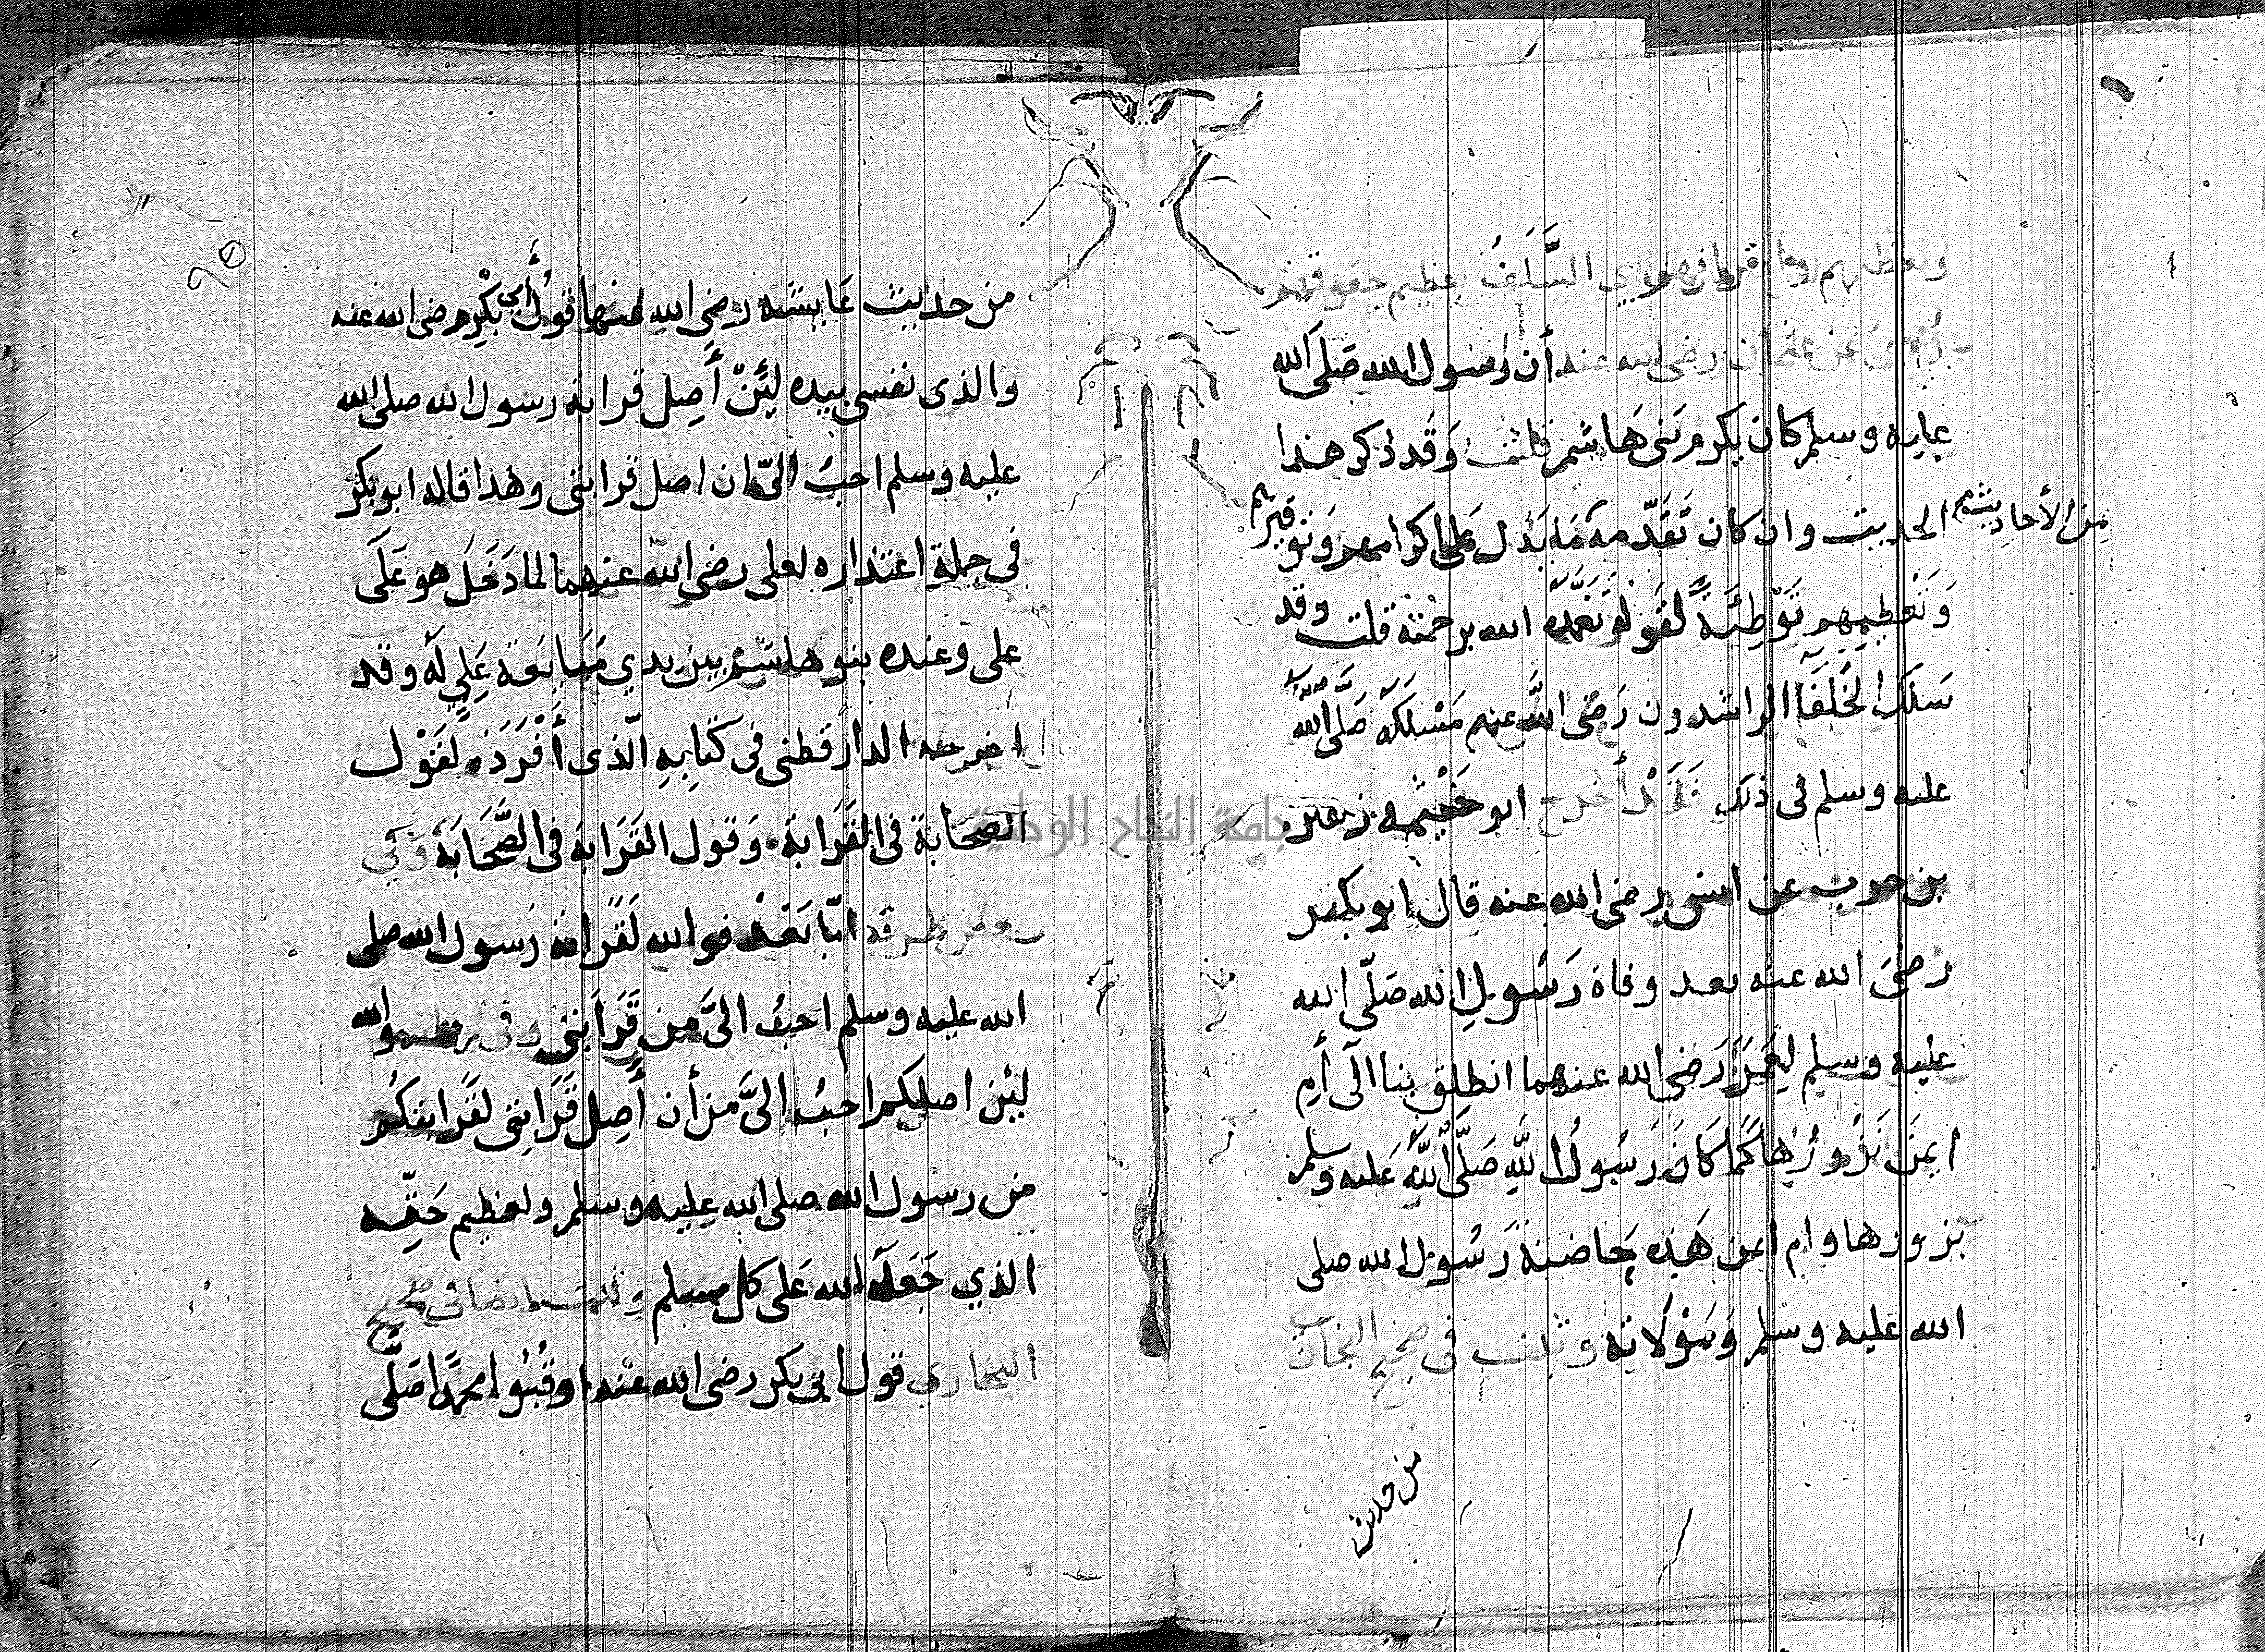 وتعظيمهم وما السَّلَفُ بعظيم حقوقهم
عن عثمان رضى الله عنه أن رسول الله صَلى الله
عليه وسلم كان يكرم بَنى هَاشم قلت وَقد ذكر هذا
الحديث وان كان تَقَدّمه مَا يَدل على اكرامهم وَتوقيرهم
من الأحاديث
وَتَعظِيمِهِم تَوْطِئَةً لقَوله تغمَّده الله برحمته قلت وقد
سَلكَ الخُلَفَا الراشدون رَضى الله عنهم مَسْلكَه صَلى الله
عليه وسلم فى ذلك فَقَدْ أَخرج ابو خَيْثمه زهير
بن حرب عن انس رضى الله عنه قال ابو بكر
رَضىَ الله عنه بعد وفاة رَسُولِ الله صَلّى الله
عليه وسلم لِعُمَرَ رَضى الله عنهما انطلِق بنا الَى أم
ايمنَ نَزُورُهَا كَمَا كَانَ رَسُولُ اللَّهِ صَلَّى اللَّهُ عَليه وسلم
يزورها وام ايمن هَذِه حَاضنة رَسُول الله صلى
الله عليه وسلم وَمَوْلاته وثبت فى صحيح البخارى
من حديث
٩٥
من حديث عَايشَه رضي الله عنها قَولُ أَبى بَكْرٍ رضى الله عنه
والذى نفسى بيده لَئِنْ أَصِل قرابة رسول الله صلى الله
عليه وسلم احبُ الىّ ان اصل قرابتى وهذا قاله ابو بكر
فى جملة اعتذاره لعلى رضى الله عنهما لما دَخَلَ هو عَلَى
على وعنده بنو هاشم بين يدي مُبَايَعَة عَلِي لَه وقد
اخرجه الدارقطنى فى كتابِهِ الّذى أَفْرَدَهُ لقَوْل
الصحَابَة فى القَرَابَة وَقول القَرَابة فى الصَّحَابَة وَفي
بعض طرقه امّا بَعْدُ فوالله لَقَرابة رَسول الله صلى
الله عليه وسلم احبُ الىَّ من قَرَابَتى وفى بعضه والله
لَئِن اصلكم احبُ الىَّ من أن أَصِل قَرَابَتِى لقَرابتكُم
من رسول الله صلى الله عليه وسلم ولعظيم حَقِّه
الذي جَعَلَهُ الله عَلى كل مسلم وثبت ايضا فى صحيح
البخاري قول ابى بكر رضى الله عنْه ارقُبُوا محمَّدًا صَلَّى